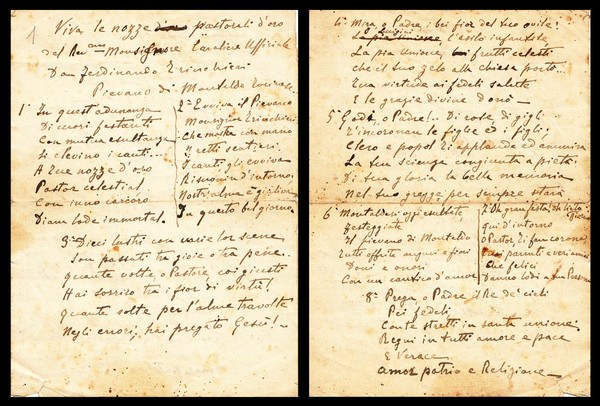 1
Viva le nozze pastorali d'oro
del Rev.mo Monsignore Cavaliere Ufficiale
Don Ferdinando Trinchieri
Pievano di Montaldo
1° In quest'adunanza
Di cuori festanti
Con mutua esultanza
Si elevino i canti...
A Tue nozze d'oro
Pastor celestial,
Con inno canoro
Diam lode immortal.
2ª Evviva il Pievano
Monsignor Trinchieri
Che mostra con mano
I retti sentieri.
I canti gli evviva
Risuonin d'intorno,
Nostr'alma è giuliva
In questo bel giorno
3ª Dieci lustri con varie lor scene
Son passati tra gioie e tra pene.
quante volte, o Pastore, coi giusti
Hai sorriso tra i fior di virtù!
quante volte per l'alme travolte
Negli errori, hai pregato Gesù! -
4: Mira o Padre, i bei fior del tuo ovile!
Luigini
La pia unione, l'asilo infantile
La pia Unione, frutti celesti
che il tuo zelo alla chiesa portò...
Era virtude ai fedeli salute
E le grazie divine donò -
5° Godi, o Padre!.. Di rose di gigli
T'incoronan le figlie ed i figli;
Clero e popol Ti applaude ed ammira
La tua scienza congiunta a pietà
Di tua gloria la bella memoria
Nel tuo gregge per sempre starà
6° Montaldesi oggi esultate,
Festeggiate
Il pievano di Montaldo
Tutti offrite auguri e fiori
Doni e onori
Con un cantico d'amor
7° Oh gran festa! oh lieto
giorno
qui d'intorno
o Pastor, Ti fan corona
parenti e veri amici
Che felici
Danno lodi a un Pastor
8ª Prega, o Padre il Re de' cieli
Pei fedeli
Con te stretti in santa unione
Regni in tutti amore e pace
E Verace
amor patrio e Religione -